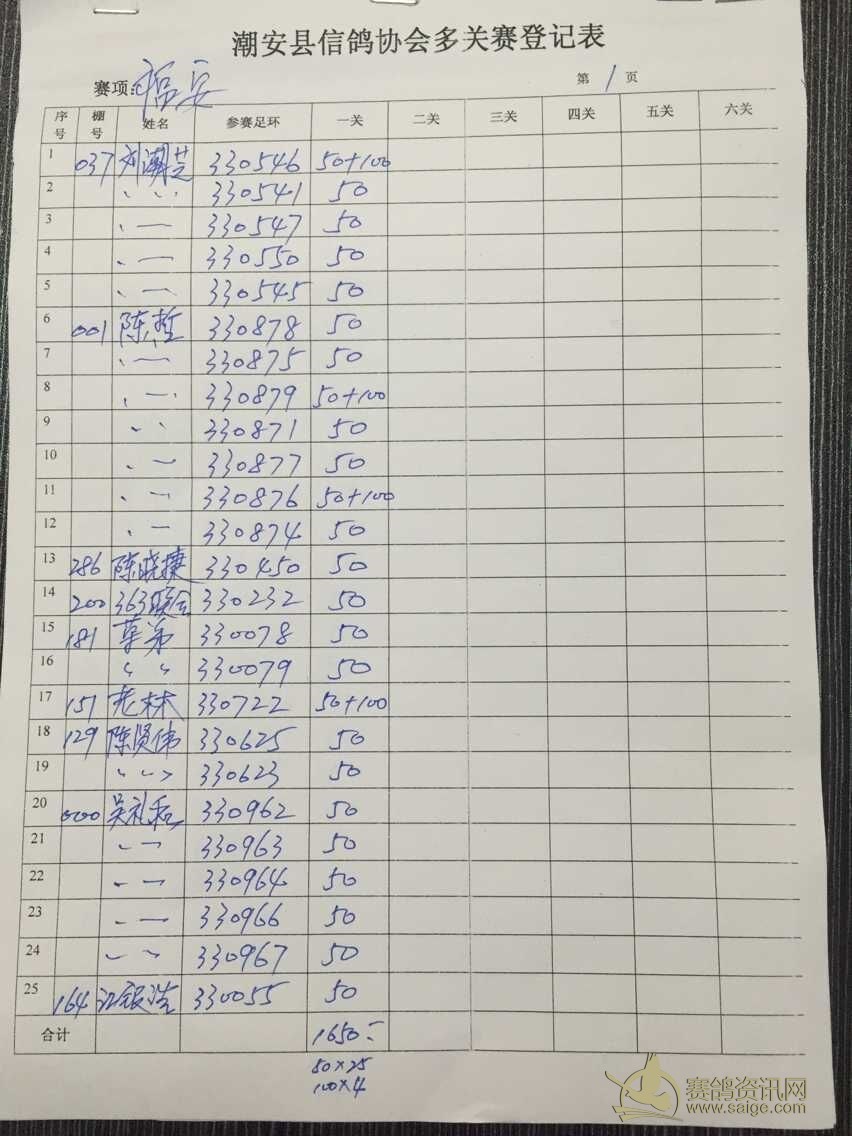 潮安县信鸽协会多关赛登记表
赛项: 福安 第 1 页
序号 棚号 姓名 参赛足环 一关 二关 三关 四关 五关 六关
1 037 刘潮芝 330546 50+100
2 〃 330541 50
3 〃 330547 50
4 〃 330550 50
5 〃 330545 50
6 001 陈哲 330878 50
7 〃 330875 50
8 〃 330879 50+100
9 〃 330871 50
10 〃 330877 50
11 〃 330876 50+100
12 〃 330874 50
13 286 陈晓捷 330450 50
14 200 363联合 330232 50
15 181 330078 50
16 〃 330079 50
17 151 老林 330722 50+100
18 129 陈贤伟 330625 50
19 〃 330623 50
20 000 吴礼和 330962 50
21 〃 330963 50
22 〃 330964 50
23 〃 330966 50
24 〃 330967 50
25 164 江银浩 330055 50
合计 1650
50×25
100×4
赛鸽资讯网
www.saige.com